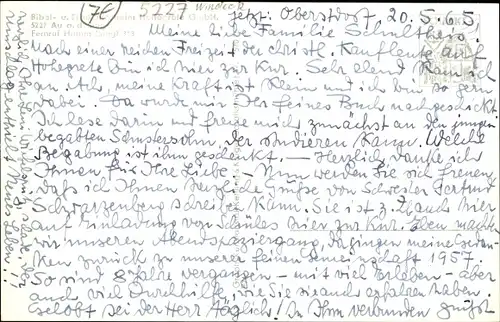 7€ 5227 Windeck
jetzt: Oberstdorf, 20.5.65
Bibel- und
5227 Au
Fernruf Hamm (Sieg)
Meine liebe Familie Schultheis.
Nach einer reichen Freizeit der christl. Kaufleute auf
Hohegrete bin ich hier zur Kur. Sehr elend kam ich
an. Ach, meine Kraft ist klein und ich bin so gern
dabei. Da wurde mir Ihr feines Buch nachgeschickt.
Ich lese darin und freue mich zunächst an dem jungen
begabten Schustersohn, der studieren kann. Welche
Begabung ist ihm geschenkt. — Herzlich danke ich
Ihnen für Ihre Liebe — Nun werden Sie sich freuen,
daß ich Ihnen herzliche Grüße von Schwester Gertrud
Schwarzenberg schreiben kann. Sie ist z. Zt. auch hier
auf Einladung von Schüles hier zur Kur. Eben machten
wir unseren Abendspaziergang, da gingen meine Gedan-
ken zurück zu unserer feinen Gemeinschaft 1957.
So sind 8 Jahre vergangen — mit viel Erleben — aber
auch viel Durchhilfe, wie Sie sie auch erfahren haben.
Gelobt sei der Herr täglich! In Ihm verbunden grüßt